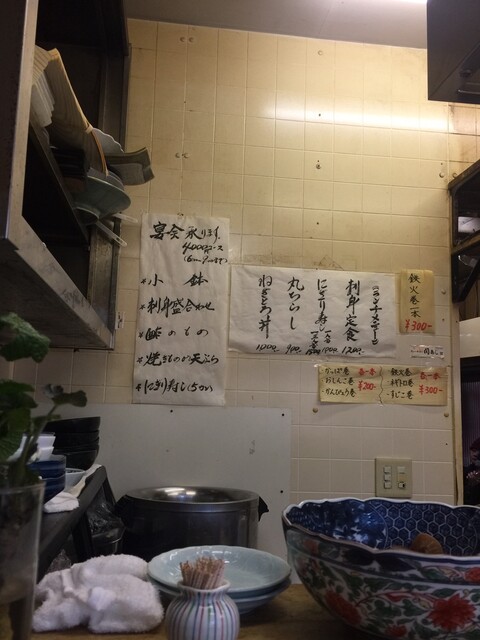 宴会承ります。
4000円コース
*小鉢
*刺身盛合わせ
*酢のもの
*焼きものか天ぷら
*にぎり寿し
(ランチメニュー)
刺身定食
1200.
にぎり寿し
1000.
丸ちらし
900.
ねぎとろ丼
1000.
鉄火巻一本
¥300-
・かっぱ巻
・おしんこ巻
・かんぴょう巻
各一本
¥200-
・鉄火巻
・ネギトロ巻
・すじこ巻
各一本
¥300-